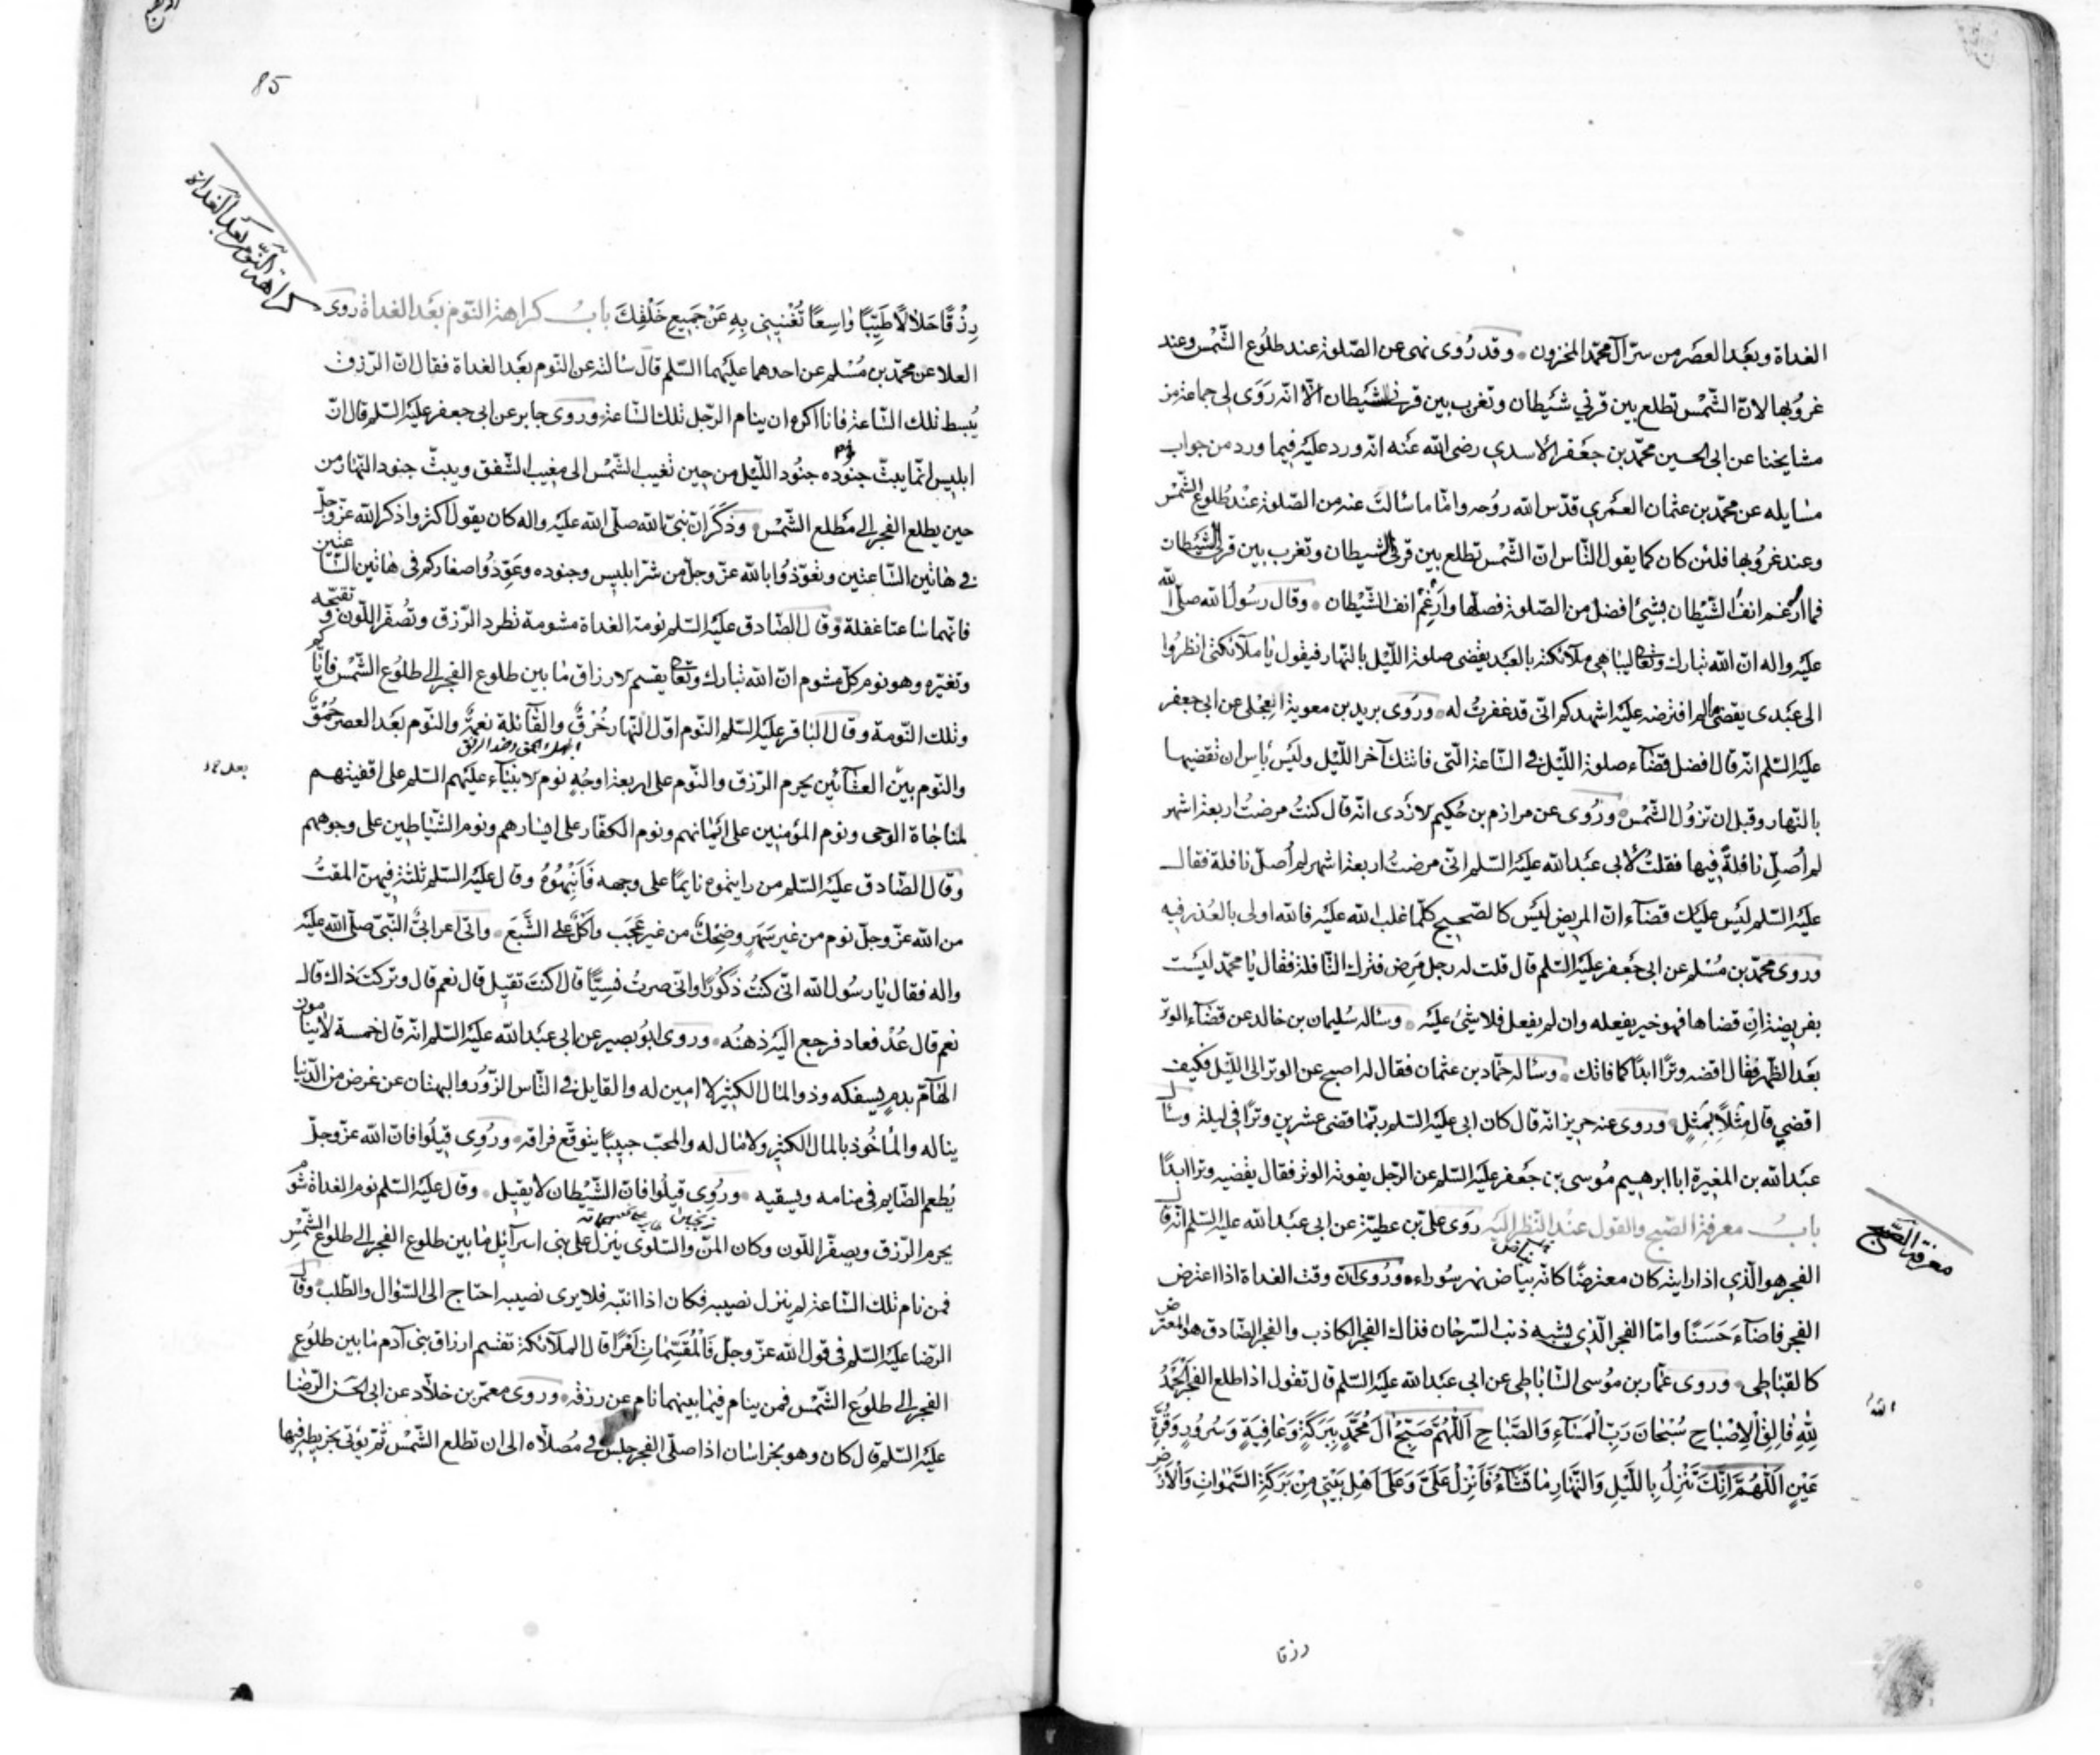 الغداة وبعد العصر من سرّ آل محمّد المخزون وقد رُوى نهى عن الصّلوة عند طلُوع الشّمْس وعند
غرُوبها لانّ الشّمْس تطلع بين قرني شَيطان وتغرب بين قرنى الشَيطان الّا انّه رَوَى لى جماعة من
مشايخنا عن ابى الحسين محمّد بن جَعفر الاسدي رضى الله عَنه انّه ورد عليْه فيما ورد من جواب
مسايله عن محمّد بن عثمان العَمري قدّس الله روُحه وامّا ما سَالتَ عنه من الصّلوة عنْد طُلوع الشّمْس
وعند غرُوبها فلئن كان كما يقول النّاس انّ الشّمْس تطلع بين قرنى الشيطان وتغرب بين قرنى الشيَطان
فما اُرغم انفُ الشّيْطان بشيْئ افضل من الصّلوة فصلّها وارْغِمْ انف الشّيْطان وقال رسُول الله صلّى الله
عليْه واله انّ الله تبارك وتعالى ليباهى ملآئكته بالعَبد يقضى صلوة اللّيْل بالنّهار فيقول يا ملآئكتى انظرُوا
الى عَبْدى يقضى ما لم افترضه عليْه اشهدكم انّى قد غفرتُ له وروى بريد بن معوية العِجْلى عن ابى جعفر
عليْه السّلم انّه قال افضل قضآء صلوة اللّيْل فى السّاعة الّتى فاتتك آخر اللّيْل وليْس باس ان تقضيها
بالنّهار وقبل ان تزوُل الشّمْس ورُوى عن مرازم بن حُكيم الازدى انّه قال كنتُ مرضتُ اربعة اشهر
لم اُصَلِّ نافلةً فيها فقلتُ لابى عبْد الله عليْه السّلم انّى مرضتُ اربعة اشهر لم اُصلّ نافلة فقال
عليْه السّلم ليْس عليْك قضآء انّ المريض ليْس كالصّحيح كلّما غلب الله عليْه فالله اولى بالعُذر فيه
وروى محمّد بن مُسْلم عن ابى جَعفر عليْه السّلم قال قلت له رجل مَرِض فترك النّافلة فقال يا محمّد ليْست
بفريضة اِن قضاها فهو خير يفعله وان لم يفعل فلا شيْئ عليْه وساله سُليمان بن خالد عن قضآء الوتر
بعْد الظّهر فقال اقضه وترًا ابدًا كما فاتك وساله حمّاد بن عثمان فقال له اصبح عن الوتر الى اللّيْل فكيف
اقضي قال مِثْلًا بِمِثلٍ وروى عنه حريز انّه قال كان ابى عليْه السّلم ربّما قضى عشرين وترًا فى ليلة وسأل
عبْد الله بن المغيرة ابا ابرهيم مُوسى بن جَعفر عليْه السّلم عن الرّجل يفوته الوتر فقال يقضيه وترا ابدًا
بابُ معرفة الصّبح والقول عنْد النّظر اليْه روَى علىّ بن عطيّة عن ابى عبْد الله عليْه السّلم انّه قال
الفجر هو الّذي اذا رايته كان معترضًا كانّه بياض نهر سُوراء ورُوى انّ وقت الغداة اذا اعترض
الفجر فاضآءَ حَسَنًا وامّا الفجر الّذي يشبه ذنب السّرحان فذاك الفجر الكاذب والفجر الصّادق هو المعترض
كالقباطى وروى عمّار بن مُوسى السّاباطى عن ابى عبْد الله عليْه السّلم قال تقول اذا طلع الفجر اَلْحَمْدُ
لِلّهِ فَالِقِ الْاِصْبَاحِ سُبْحَانَ رَبِّ الْمَسَآءِ وَالصَّبَاحِ اَللّهُمَّ صَبِّحْ آلَ مُحَمَّدٍ بِبَرَكَةٍ وَعَافِيَةٍ وَسُرُورٍ وَقُرَّةِ
عَيْنٍ اَللّهُمَّ اِنَّكَ تُنْزِلُ بِاللَّيْلِ وَالنَّهَارِ مَا تَشَآءُ فَاَنْزِلْ عَلَىَّ وَعَلَى اَهْلِ بَيْتِى مِنْ بَرَكَةِ السَّمٰوَاتِ وَالْاَرْضِ
معرفة الصّبح
رزقا
85
كراهة النّوم بعد الغداة
رِزْقًا حَلَالًا طَيِّبًا وَاسِعًا تُغْنِينِى بِهِ عَنْ جَمِيعِ خَلْقِكَ بابُ كراهة النّوم بعَد الغداة روى
العلا عن محمّد بن مُسْلم عن احدهما عليْهما السّلم قال سَالته عن النّوم بعَد الغداة فقال انّ الرّزق
يُبسط تلك السّاعة فانا اكره ان ينام الرّجل تلك السّاعة وروى جابر عن ابى جعفر عليْه السّلم قال انّ
ابليس انّما يبثّ جنُوده جنُود اللّيْل من حِين تغيب الشّمْس الى مغيب الشّفق ويبثّ جنود النّهار من
حين يطلع الفجر الى مَطلع الشّمْس وذكَرَ انّ نبىّ الله صلّى الله عليْه واله كان يقول اكثروا ذكر الله عزّ وجلّ
فى هاتيْن السّاعتين وتعَوّذوُا بالله عزّ وجلّ من شرّ ابليس وجنوده وعَوّذُوا صغاركم فى هاتيْن السّاعتين
فانّهما سَاعتا غفلة وقال الصّادق عليْه السّلم نومة الغداة مشومة تطرد الرّزق وتُصفّر اللّون وتقبّحه
وتغيّره وهو نوم كلّ مشوم انّ الله تبارك وتعالى يقسم الارزاق ما بين طلوع الفجر الى طلوُع الشّمْس فايّاكم
وتلك النّومة وقال الباقر عليْه السّلم النّوم اوّل النّهار خُرْقٌ والقآئلة نعمةٌ والنّوم بعَد العصر حُمْقٌ
والنّوم بيْن العشآئيْن يحرم الرّزق والنّوم على اربعة اوجُهٍ نوم الانبيَآء عليْهم السّلم على اقفيتهم
لمناجاة الوحى ونوم المؤمنين على ايْمانهم ونوم الكفّار على ايْسارهم ونوم الشّيَاطين على وجوههم
وقال الصّادق عليْه السّلم من رايتموه نايمًا على وجهه فَاَنْبِهُوهُ وقال عليْه السّلم ثلثة فيهنّ المقتُ
من الله عزّ وجلّ نوم من غير سَهَرٍ وضِحْكٌ من غير عَجَب واَكْلٌ على الشَّبَع واتى اعرابىٌّ النّبىّ صلّى الله عليْه
واله فقال يا رسُول الله انّى كنتُ ذَكُورًا وانّى صرتُ نسِيًّا قال اكنتَ تقيل قال نعم قال وتركتَ ذاك قال
نعم قال عُدْ فعاد فرجع اليْه ذهنُه وروى ابوُ بصير عن ابى عبْد الله عليْه السّلم انّه قال خمسة لا ينامون
الهآمّ بدمٍ يسفكه وذو المال الكثيْر لا امين له والقايل فى النّاس الزّوُر والبهتان عن غرض من الدّنيا
يناله والمأخُوذ بالمال الكثير ولا مال له والمحبّ حبيبًا يتوقّع فراقه ورُوِى قِيلُوا فانّ الله عزّ وجلّ
يُطعم الصّايم فى منامه ويسقيه ورُوِى قيلُوا فانّ الشّيْطان لا يقيل وقال عليْه السّلم نوم الغداة شُوم
يحرم الرّزق ويصفّر اللّون وكان المنّ والسّلوى ينزل على بنى اسرآئيل ما بين طلوع الفجر الى طلوع الشّمْس
فمن نام تلك السّاعة لم ينزل نصيبه فكان اذا انتبه فلا يرى نصيبه احتاج الى السّؤال والطّلب وقال
الرّضا عليْه السّلم فى قول الله عزّ وجلّ فَالْمُقَسِّمَاتِ اَمْرًا قال الملآئكة تقسم ارزاق بنى آدم ما بين طلوُع
الفجر الى طلوُع الشّمْس فمن ينام فيما بينهما نام عن رزقه وروى معمّر بن خلّاد عن ابى الحسَن الرّضا
عليْه السّلم قال كان وهو بخراسَان اذا صلّى الفجر جلس فى مُصلّاه الى ان تطلع الشّمْس ثمّ يؤتى بخريطة فيها